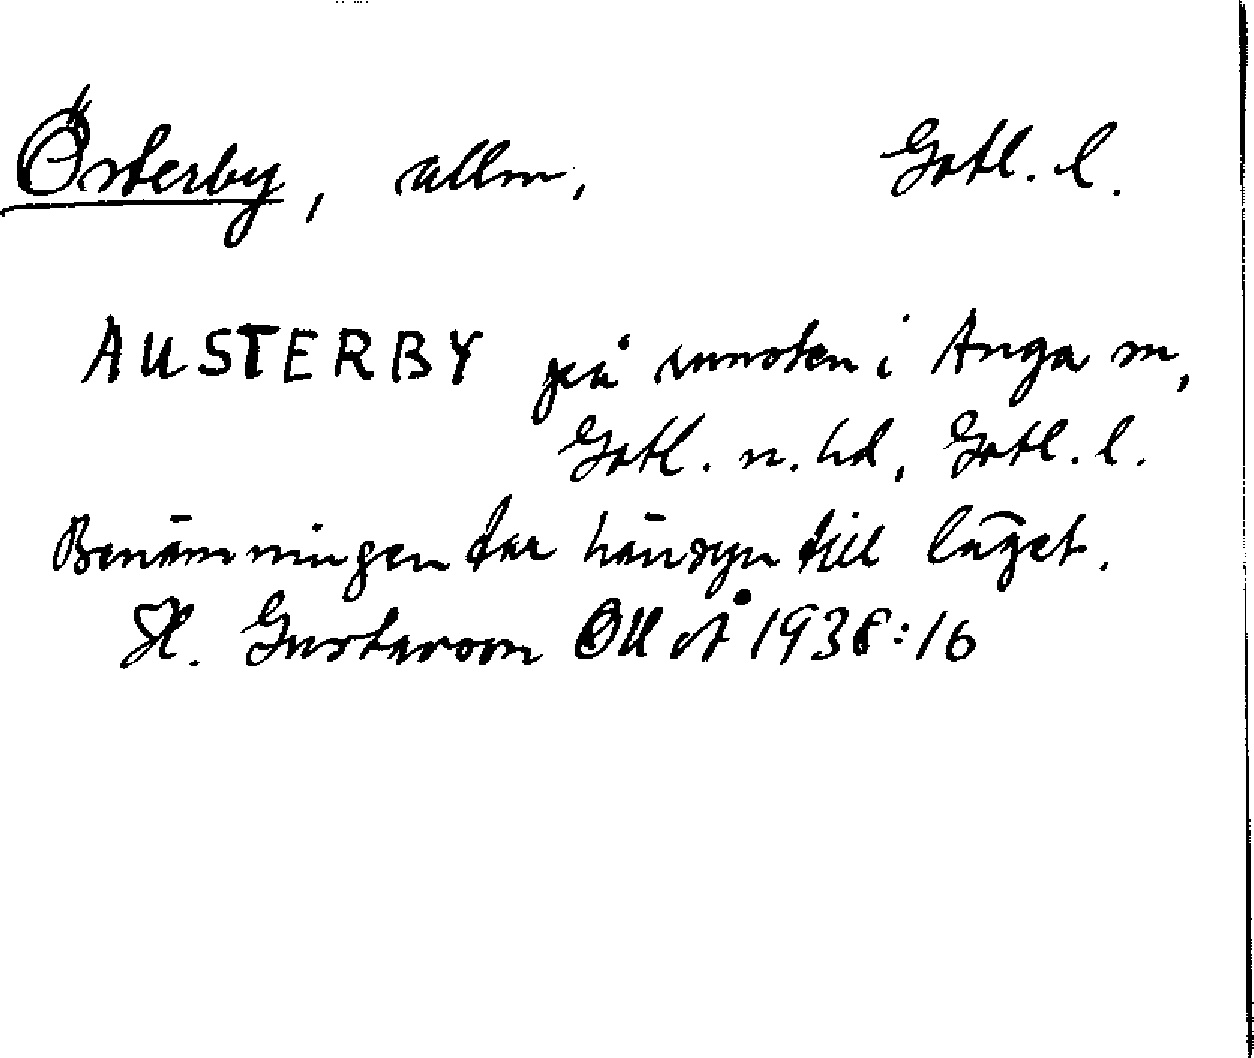 Österby, allm, Gotl. l.
AUSTERBY på runsten i Anga sn,
Gotl. n. hd, Gotl. l.
Benämningen tar hänsyn till läget.
H. Gustavson OUÅ 1938:16